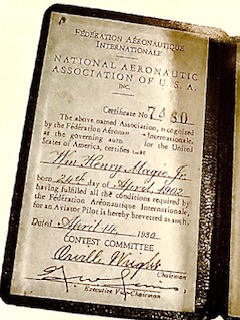 FÉDÉRATION AÉRONAUTIQUE
INTERNATIONALE
NATIONAL AERONAUTIC
ASSOCIATION OF U.S.A.
INC.
Certificate No 7880
The above named Association, recognized
by the Fédération Aéronau Internationale,
as the governing auth for the United
States of America, certifies that
Wm Henry Magie Jr.
born 26th day of April, 1902
having fulfilled all the conditions required by
the Fédération Aéronautique Internationale,
for an Aviator Pilot is hereby brevetted as such.
Dated April 14, 1930
CONTEST COMMITTEE
Orville Wright
Chairman
Executive Vice-Chairman